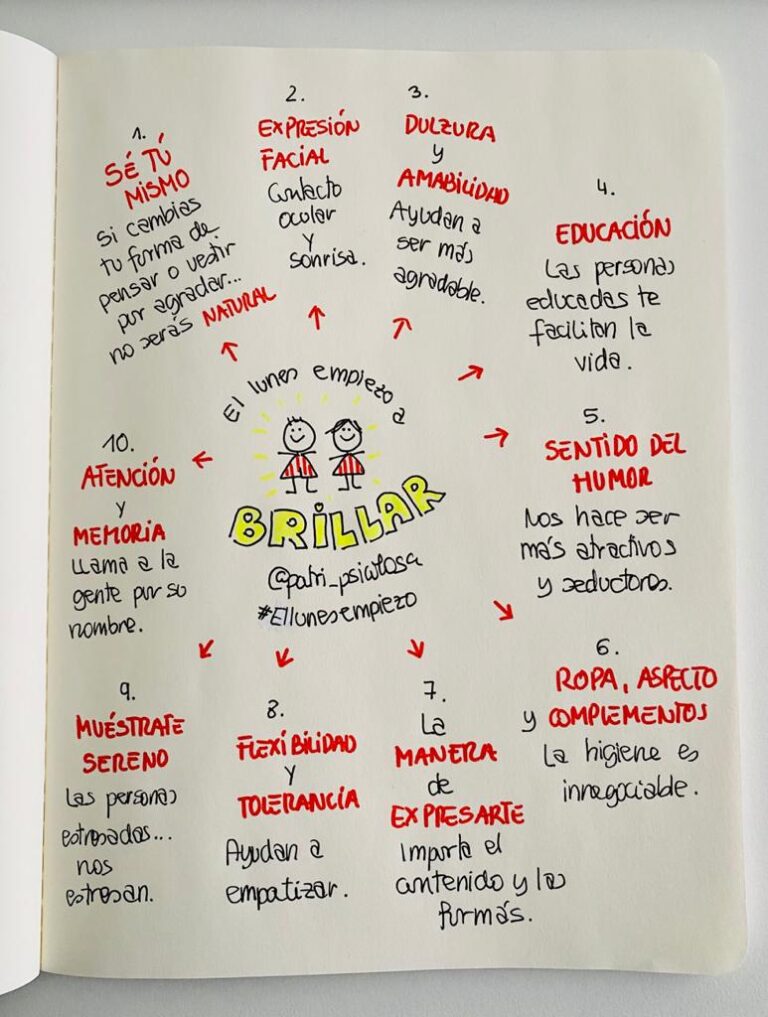 El lunes empiezo a
BRILLAR
@patri_psicolosa
#Ellunesempiezo
1.
SÉ TÚ
MISMO
Si cambias
tu forma de
pensar o vestir
por agradar...
no serás NATURAL
2.
EXPRESIÓN
FACIAL
Contacto
ocular
y
sonrisa.
3.
DULZURA
y
AMABILIDAD
Ayudan a
ser más
agradable.
4.
EDUCACIÓN
Las personas
educadas te
facilitan la
vida.
5.
SENTIDO DEL
HUMOR
Nos hace ser
más atractivos
y seductores.
6.
ROPA, ASPECTO
y COMPLEMENTOS
La higiene es
innegociable.
7.
La
MANERA
de
EXPRESARTE
Importa el
contenido y las
formás.
8.
FLEXIBILIDAD
Y
TOLERANCIA
Ayudan a
empatizar.
9.
MUÉSTRATE
SERENO
Las personas
estresadas...
nos
estresan.
10.
ATENCIÓN
Y
MEMORIA
LLama a la
gente por su
nombre.